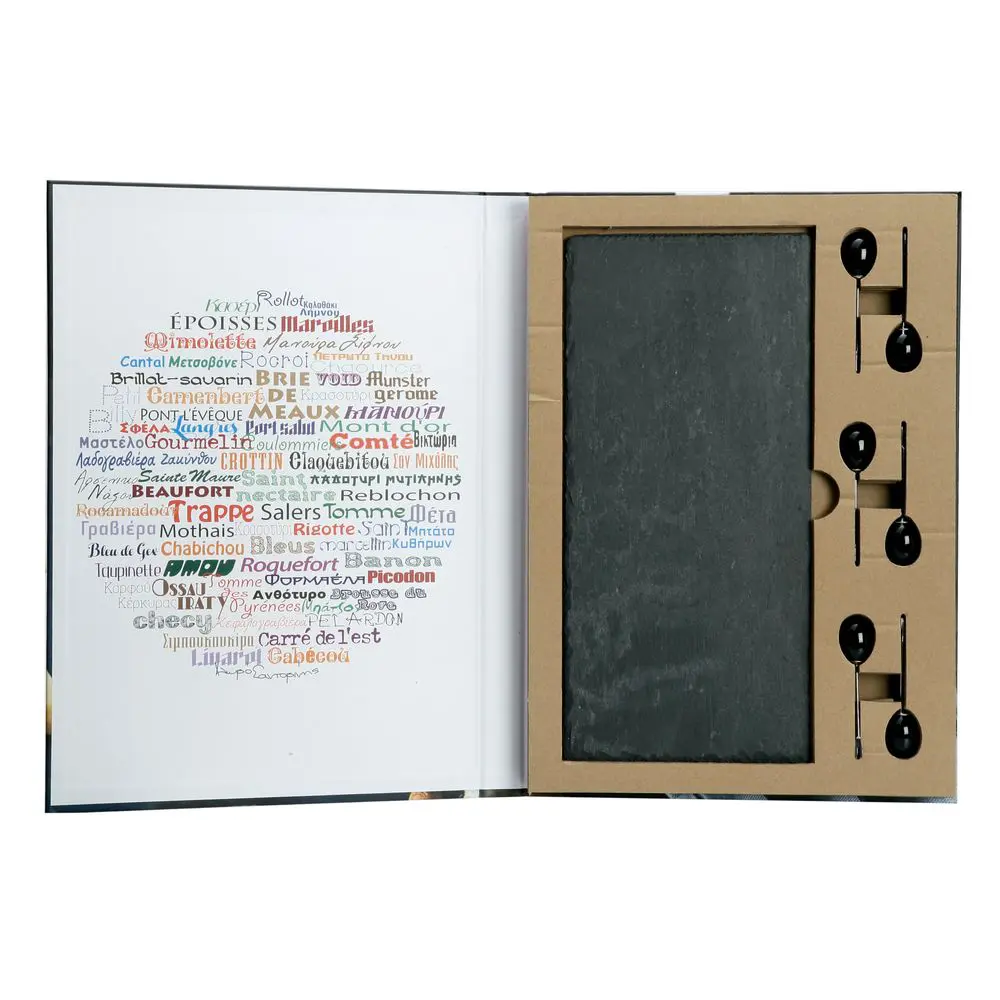 Κασέρι Rollot Καλαθάκι Λήμνου
ÉPOISSES Maroilles
Mimolette Μανούρα Σίφνου
Cantal Μετσοβόνε Rocroi ΠΕΤΡΩΤΟ Τήνου
Chaource
Brillat-savarin BRIE VOID Munster
Petit Camembert DE Κρασοτύρι gerome
Billy PONT L'ÉVÊQUE MEAUX ΜΑΝΟΥΡΙ
ΣΦΕΛΑ Langres Port salut Mont d'or
Μαστέλο Gourmelin Coulommiers Comté Βικτώρια
Λαδογραβιέρα Ζακύνθου CROTTIN Claquebitou Σαν Μιχάλης
Αρσενικό Sainte Maure Saint ΛΑΔΟΤΥΡΙ ΜΥΤΙΛΗΝΗΣ
Νάξου BEAUFORT nectaire Reblochon
Rocamadour Trappe Salers Tomme Φέτα
Γραβιέρα Mothais Κρασοτύρι Rigotte Saint Μπάτζο
Bleu de Gex Chabichou Bleus marcellin Κυθήρων
Taupinette AMOU Roquefort Banon
Κορφού Ossau Tomme ΦΟΡΜΑΕΛΑ Picodon
Κέρκυρας IRATY des Ανθότυρο Brousse du
Pyrénées Μπάτζο Rove
checy Κεφαλογραβιέρα PELARDON
Carré de l'est
Livarot Cabécou